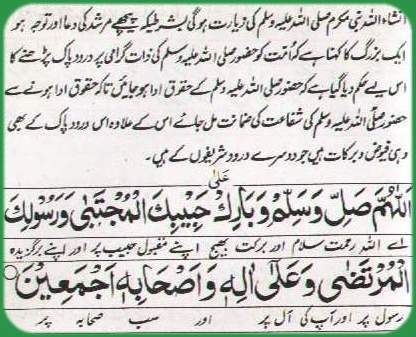 انشاء اللہ نبی مکرم صلی اللہ علیہ وسلم کی زیارت ہوگی بشرطیکہ پیچھے مرشد کی دعا اور توجہ ہو
ایک بزرگ کا کہنا ہے کہ امت کو حضور صلی اللہ علیہ وسلم کی ذات گرامی پر درود پاک پڑھنے کا
اس لیے حکم دیا گیا ہے کہ حضور صلی اللہ علیہ وسلم کے حقوق ادا ہو جائیں تاکہ حقوق ادا ہونے سے
حضور صلی اللہ علیہ وسلم کی شفاعت کی ضمانت مل جائے اس کے علاوہ اس درود پاک کے بھی
وہی فیوض و برکات ہیں جو دوسرے درود شریفوں کے ہیں۔
عَلٰی
اَللّٰهُمَّ صَلِّ وَسَلِّمْ وَبَارِكْ حَبِيْبِكَ الْمُجْتَبٰى وَرَسُوْلِكَ
اے اللہ رحمت سلام اور برکت بھیج اپنے مقبول حبیب پر اور اپنے برگزیدہ
الْمُرْتَضٰى وَعَلٰى اٰلِهٖ وَاَصْحَابِهٖ اَجْمَعِيْنَ
رسول پر اور آپ کی آل پر اور سب صحابہ پر